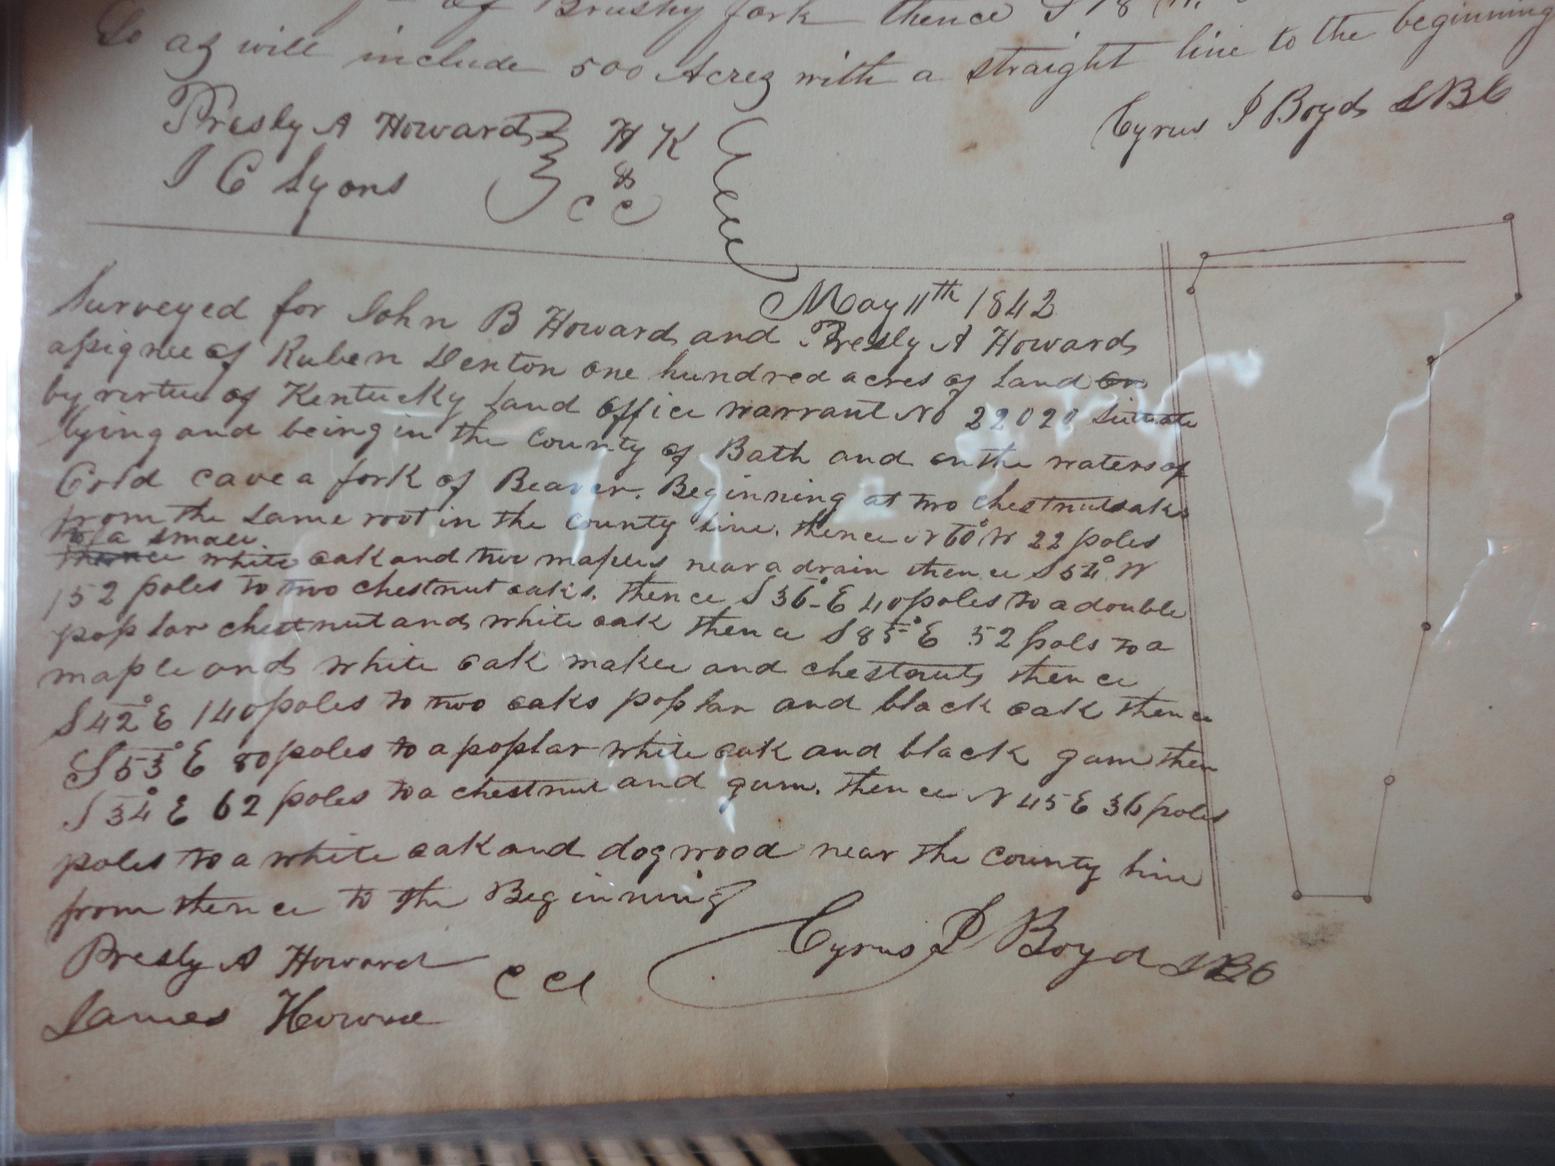 of Brushy fork thence S 78
So as will include 500 Acres with a straight line to the beginning
Presly A Howard } H K Cyrus P Boyd SBC
J C Lyons } & C C
May 11th 1842
Surveyed for John B Howard and Presly A Howard
assignee of Ruben Denton one hundred acres of Land on
by virtue of Kentucky Land office warrant No 22020 Situate
lying and being in the County of Bath and on the waters of
Cold cave a fork of Beaver. Beginning at two chestnut oaks
from the same root in the county line. thence N 60° W 22 poles
to a small
thence white oak and two maples near a drain thence S 54° W
152 poles to two chestnut oaks. thence S 36° E 40 poles to a double
poplar chestnut and white oak thence S 85° E 52 pols to a
maple and white oak makee and chestnuts thence
S 42° E 140 poles to two oaks poplar and black oak thence
S 53° E 80 poles to a poplar white oak and black gum then
S 34° E 62 poles to a chestnut and gum. thence N 45 E 36 poles
poles to a white oak and dogwood near the county line
from thence to the Beginning
Presly A Howard C C Cyrus P Boyd SBC
James Howard